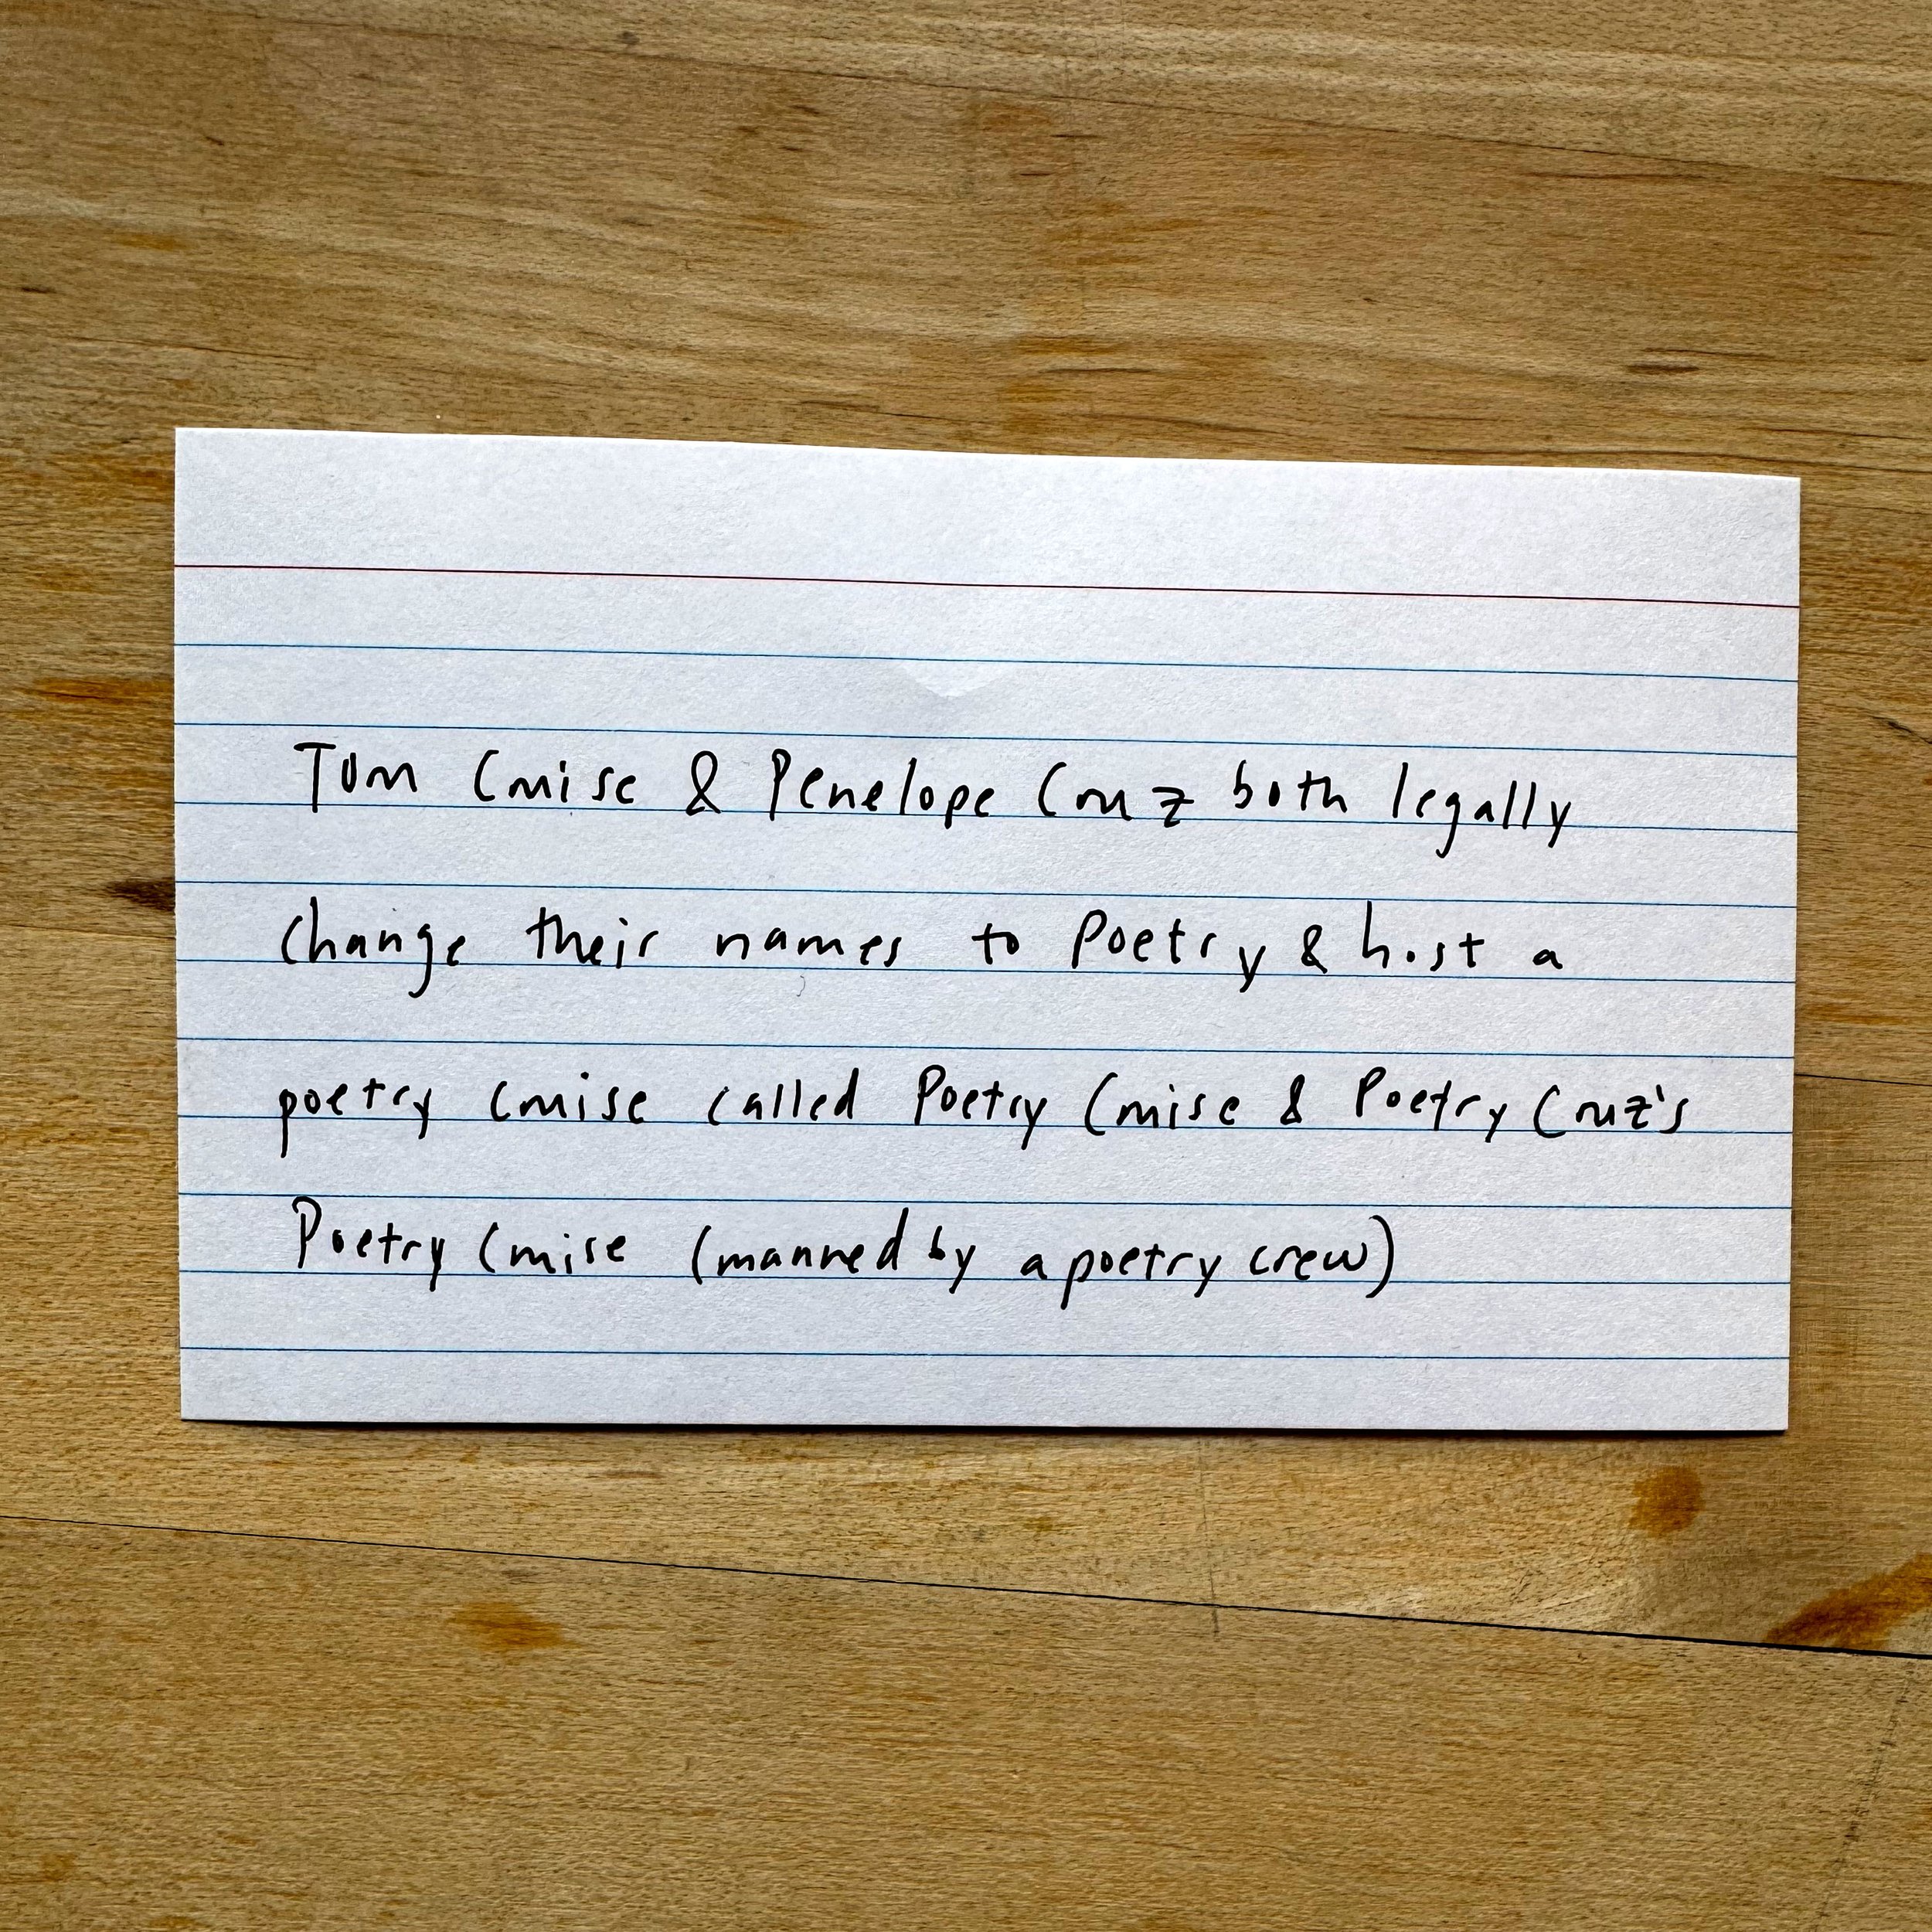 Tom Cruise & Penelope Cruz both legally
change their names to Poetry & host a
poetry cruise called Poetry Cruise & Poetry Cruz's
Poetry Cruise (manned by a poetry crew)